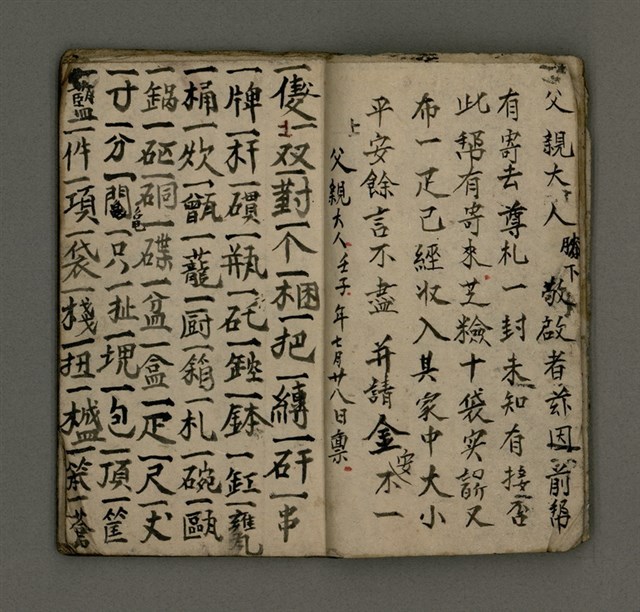 父親大人膝下敬啟者茲因前幫
有寄去尊札一封未知有接否
此幫有寄來芝檢十袋实韶又
布一疋已經收入其家中大小
平安餘言不盡并請金安不一
上 父親大人 壬子年七月廿八日稟
一双一對一个一梱一把一縛一矸一串
一牌一杆一礩一瓶一矺一鏗一鉢一缸
一桶一炊一甑一蘢一厨一箱一札一碗一甌
一鍋一砸一硐一碟一盆一盒一疋一尺一丈
一寸一分一只一扯一塊一包一頂一筐
一件一項一袋一棧一扭一榼一菜一蒼